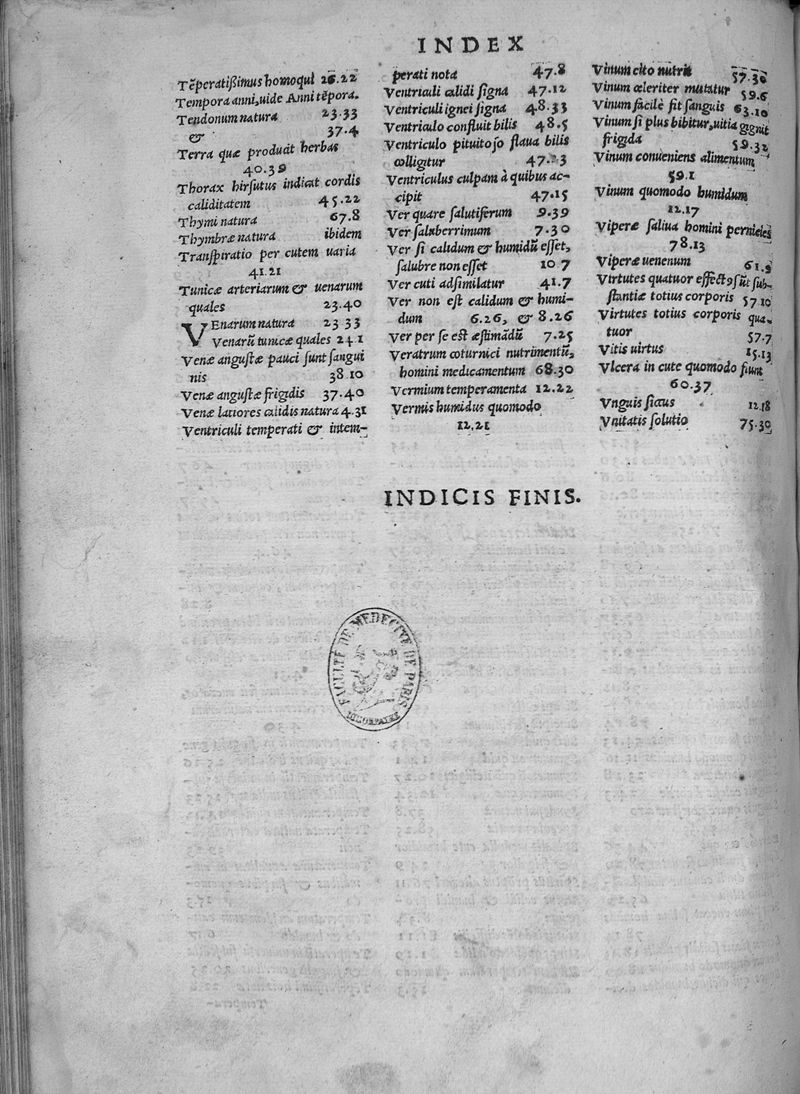 INDEX
Tẽperatißimus homo qui 26.22
Tempora anni, uide Anni tẽpora.
Tendonum natura 23.33
& 37.4
Terra quæ producit herbas
40.39
Thorax hirsutus indicat cordis
caliditatem 45.22
Thymi natura 67.8
Thymbræ natura ibidem
Transpiratio per cutem uaria
41.21
Tunicæ arteriarum & uenarum
quales 23.40
VEnarum natura 23 33
Venarũ tunicæ quales 24 1
Venæ angustæ pauci sunt sangui
nis 38.10
Venæ angustæ frigidis 37.40
Venæ latiores calidis natura 4.31
Ventriculi temperati & intem-
perati nota 47.8
Ventriculi calidi signa 47.12
Ventriculi ignei signa 48.33
Ventriculo confluit bilis 48.5
Ventriculo pituitoso flaua bilis
colligitur 47.23
Ventriculus culpam à quibus ac-
cipit 47.15
Ver quare salutiferum 9.39
Ver saluberrimum 7.30
Ver si calidum & humidũ esset,
salubre non esset 10 7
Ver cuti adsimilatur 41.7
Ver non est calidum & humi-
dum 6.26, & 8.26
Ver per se est æstimãdũ 7.25
Veratrum coturnici nutrimentũ,
homini medicamentum 68.30
Vermium temperamenta 12.22
Vermis humidus quomodo
12.21
Vinum cito nutrit 57.36
Vinum celeriter mutatur 59.6
Vinum facilè fit sanguis 63.10
Vinum si plus bibitur, uitia gignit
frigida 59.32
Vinum conueniens alimentum
59.1
Vinum quomodo humidum
12.17
Viperæ saliua homini pernicies
78.13
Viperæ uenenum 61.9
Virtutes quatuor effectʒ sũt sub-
stantiæ totius corporis 57 10
Virtutes totius corporis qua-
tuor 57.7
Vitis uirtus 15.13
Vlcera in cute quomodo fiunt
60.37
Vnguis siccus 12.18
Vnitatis solutio 75.30
INDICIS FINIS.
FACULTÉ DE MEDECINE DE PARIS